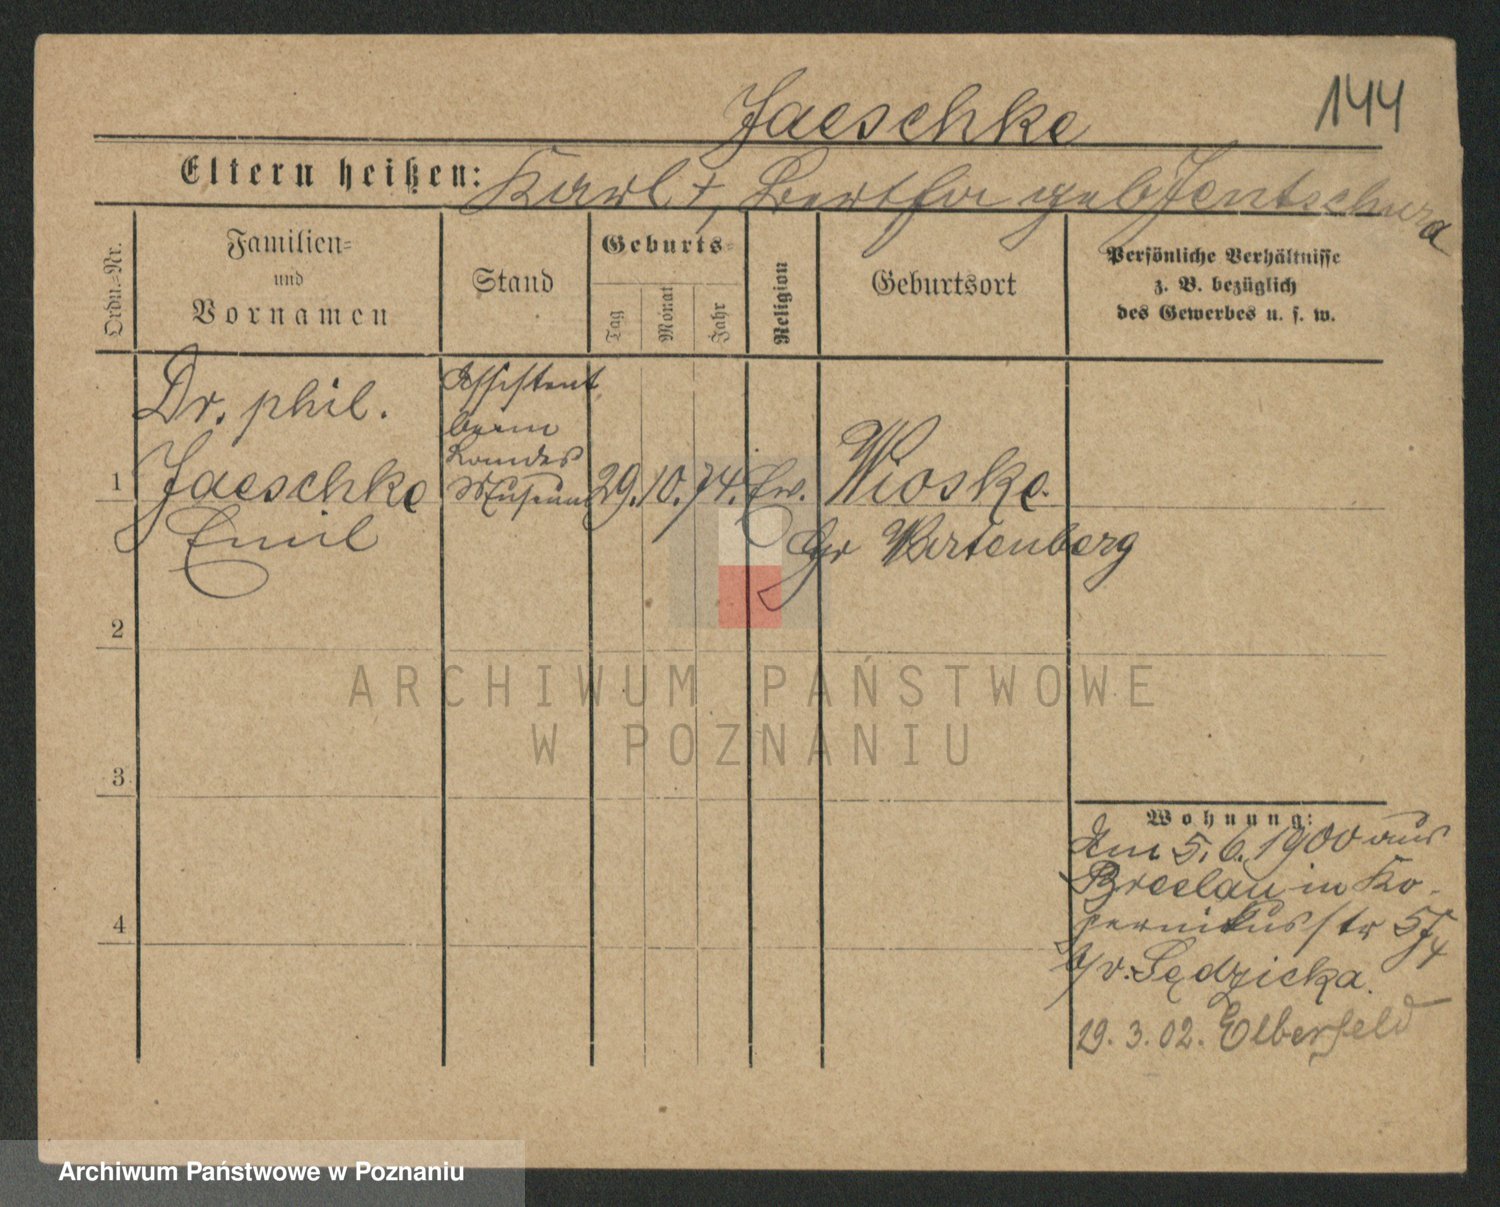 144
Jaeschke
Eltern heißen: Karl †, Bertha geb Jentschura
Ordn.-Nr.
Familien=
und
Vornamen
Stand
Geburts=
Tag
Monat
Jahr
Religion
Geburtsort
Persönliche Verhältnisse
z. B. bezüglich
des Gewerbes u. s. w.
Dr. phil.
1 Jaeschke
Emil
Assistent
beim
Landes
Museum
29. 10. 74. Ev. Wioske.
Gr Wartenberg
2
3
4
Wohnung:
Am 5. 6. 1900 aus
Breslau in Ko-
pernikusstr
b/v. Sędzicka.
29. 3. 02. Elberfeld
ARCHIWUM PAŃSTWOWE
W POZNANIU
Archiwum Państwowe w Poznaniu